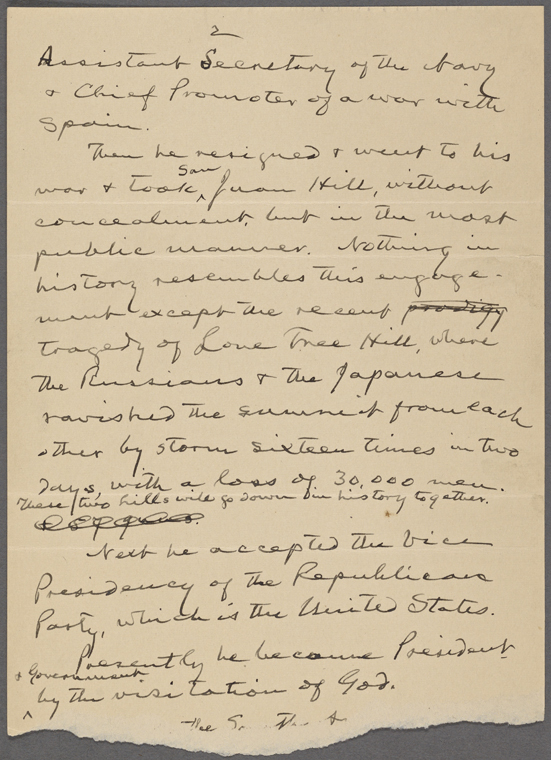 2
Assistant Secretary of the Navy
& Chief Promoter of a war with
Spain.
Then he resigned & went to his
San
war & took ^ Juan Hill, without
concealment, but in the most
public manner. Nothing in
history resembles this engage-
ment except the recent prodigy
tragedy of Lone Tree Hill, where
the Russians & the Japanese
ravished the summit from each
other by storm sixteen times in two
days, with a loss of 30,000 men.
These two hills will go down in history together.
Next he accepted the Vice
Presidency of the Republican
Party, which is the United States.
Presently he became President
& Government
^ by the visitation of God.
The